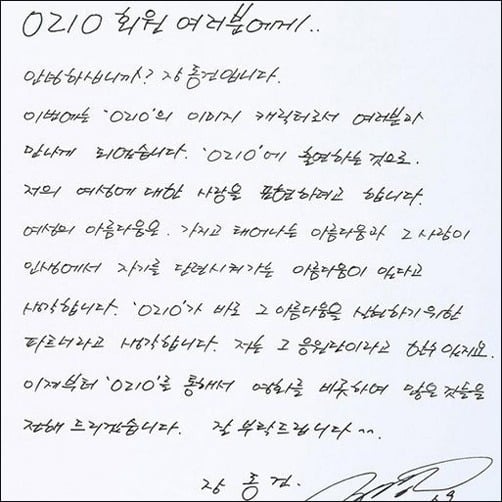 O2IO 회원 여러분에게..
안녕하십니까? 장동건입니다.
이번에는 'O2IO'의 이미지 캐릭터로서 여러분과
만나게 되었습니다. 'O2IO'에 출연하는 것으로.
저의 여성에 대한 사랑을 표현하려고 합니다.
여성의 아름다움은. 가지고 태어나는 아름다움과 그 사람이
인생에서 자기를 단련시켜가는 아름다움이 있다고
생각합니다. 'O2IO'가 바로 그 아름다움을 실현하기 위한
파트너라고 생각합니다. 저는 그 응원단이라고 할수 있지요.
이제부터 'O2IO'를 통해서 영화를 비롯하여 많은 것들을
전해 드리겠습니다. 잘 부탁드립니다 ^^.
장 동 건.